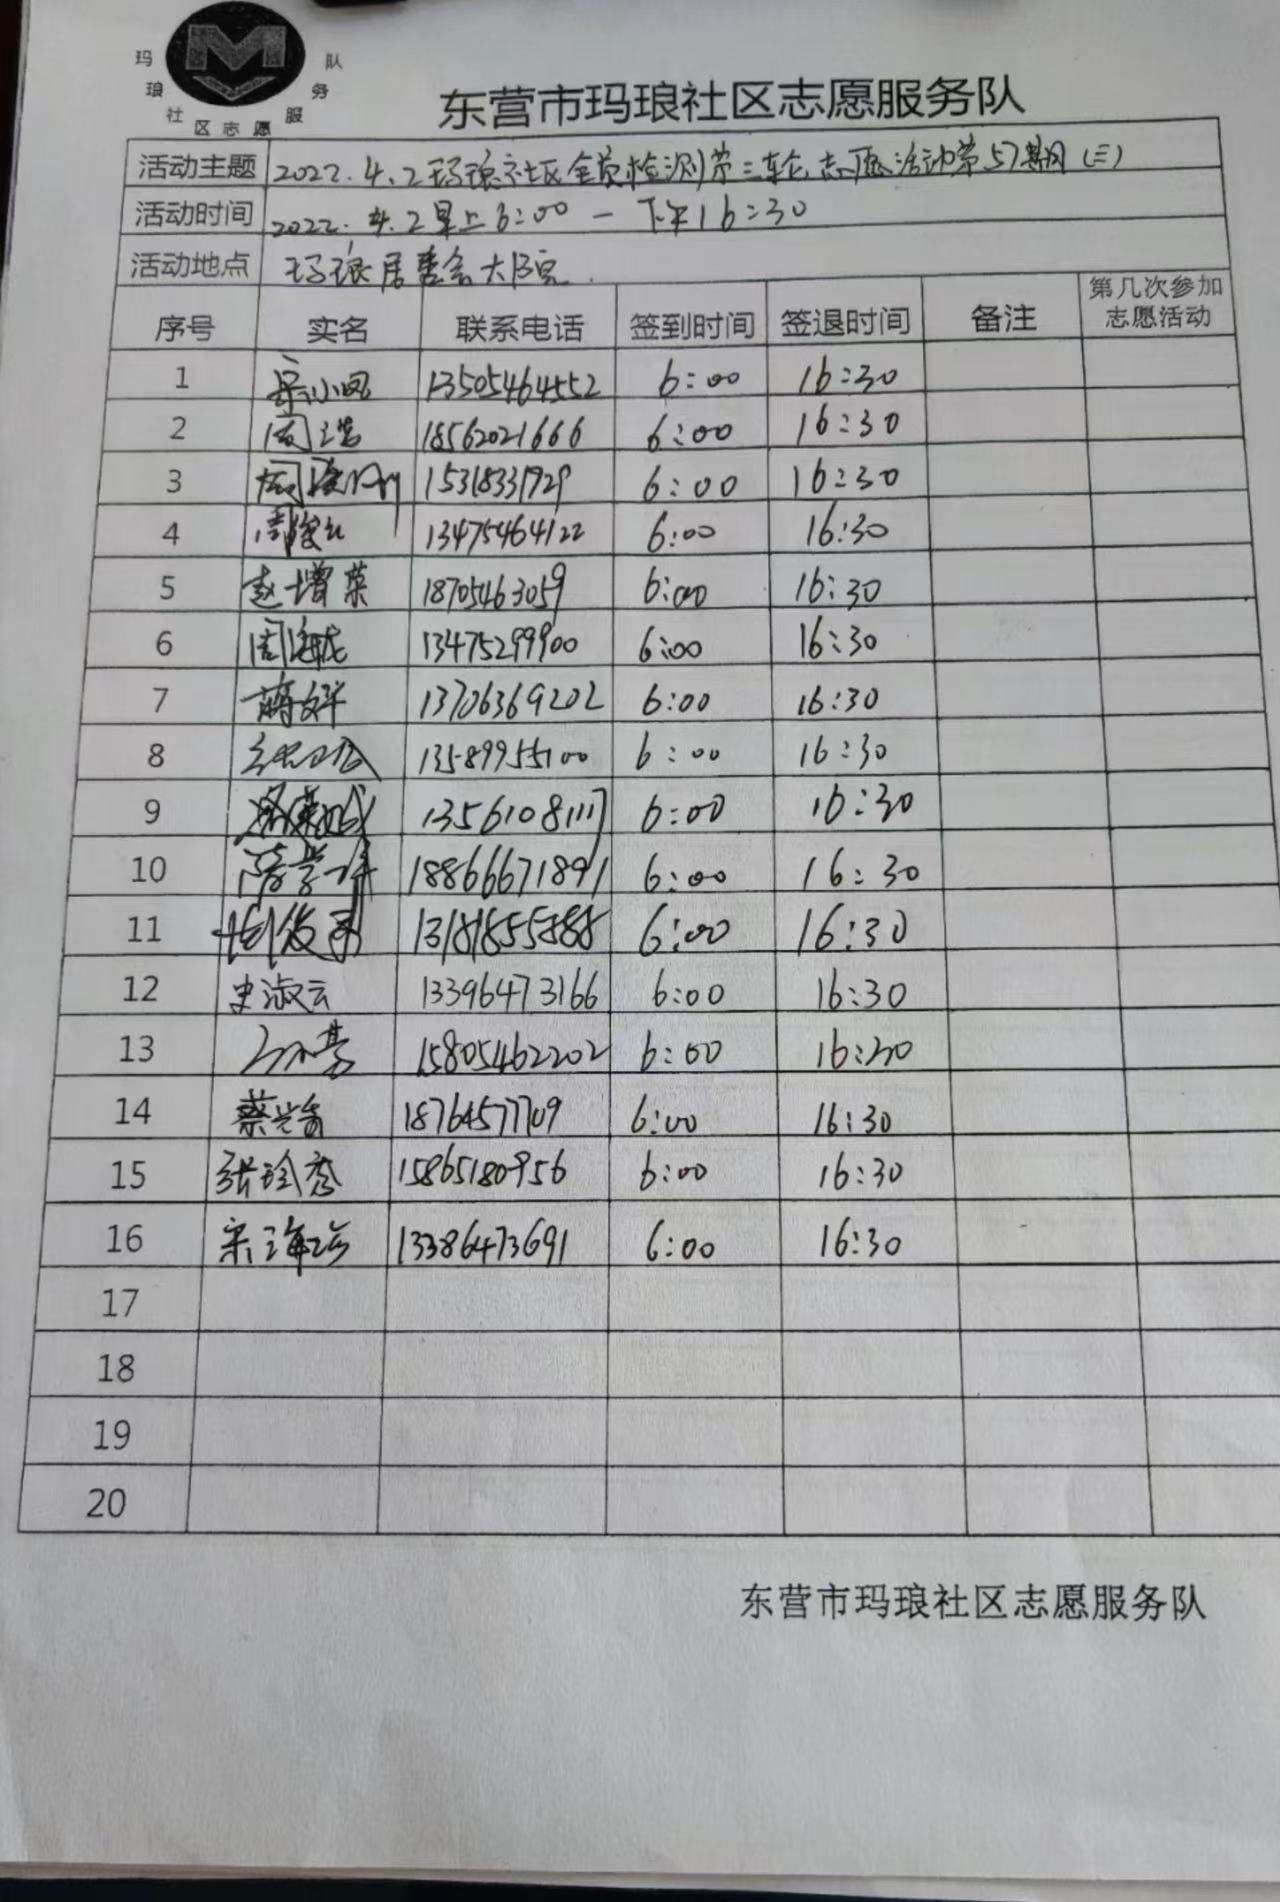 玛琅社区志愿服务队
东营市玛琅社区志愿服务队
活动主题 2022.4.2玛琅社区全员检测第三轮志愿活动第57期(三)
活动时间 2022.4.2早上6:00一下午16:30
活动地点 玛琅居委会大院.
序号 实名 联系电话 签到时间 签退时间 备注 第几次参加志愿活动
1 岳小凤 13505464552 6:00 16:30
2 18562021666 6:00 16:30
3 15318331929 6:00 16:30
4 周俊红 13475464122 6:00 16:30
5 赵增菜 18705463059 6:00 16:30
6 周海龙 13475299900 6:00 16:30
7 蒋文祥 13706369202 6:00 16:30
8 13589955100 6:00 16:30
9 13561081117 6:00 16:30
10 18866671891 6:00 16:30
11 13181855888 6:00 16:30
12 史淑云 13396473166 6:00 16:30
13 15805462202 6:00 16:30
14 蔡兴香 18764577709 6:00 16:30
15 张玲秀 15865180956 6:00 16:30
16 宋海珍 13386473691 6:00 16:30
17
18
19
20
东营市玛琅社区志愿服务队